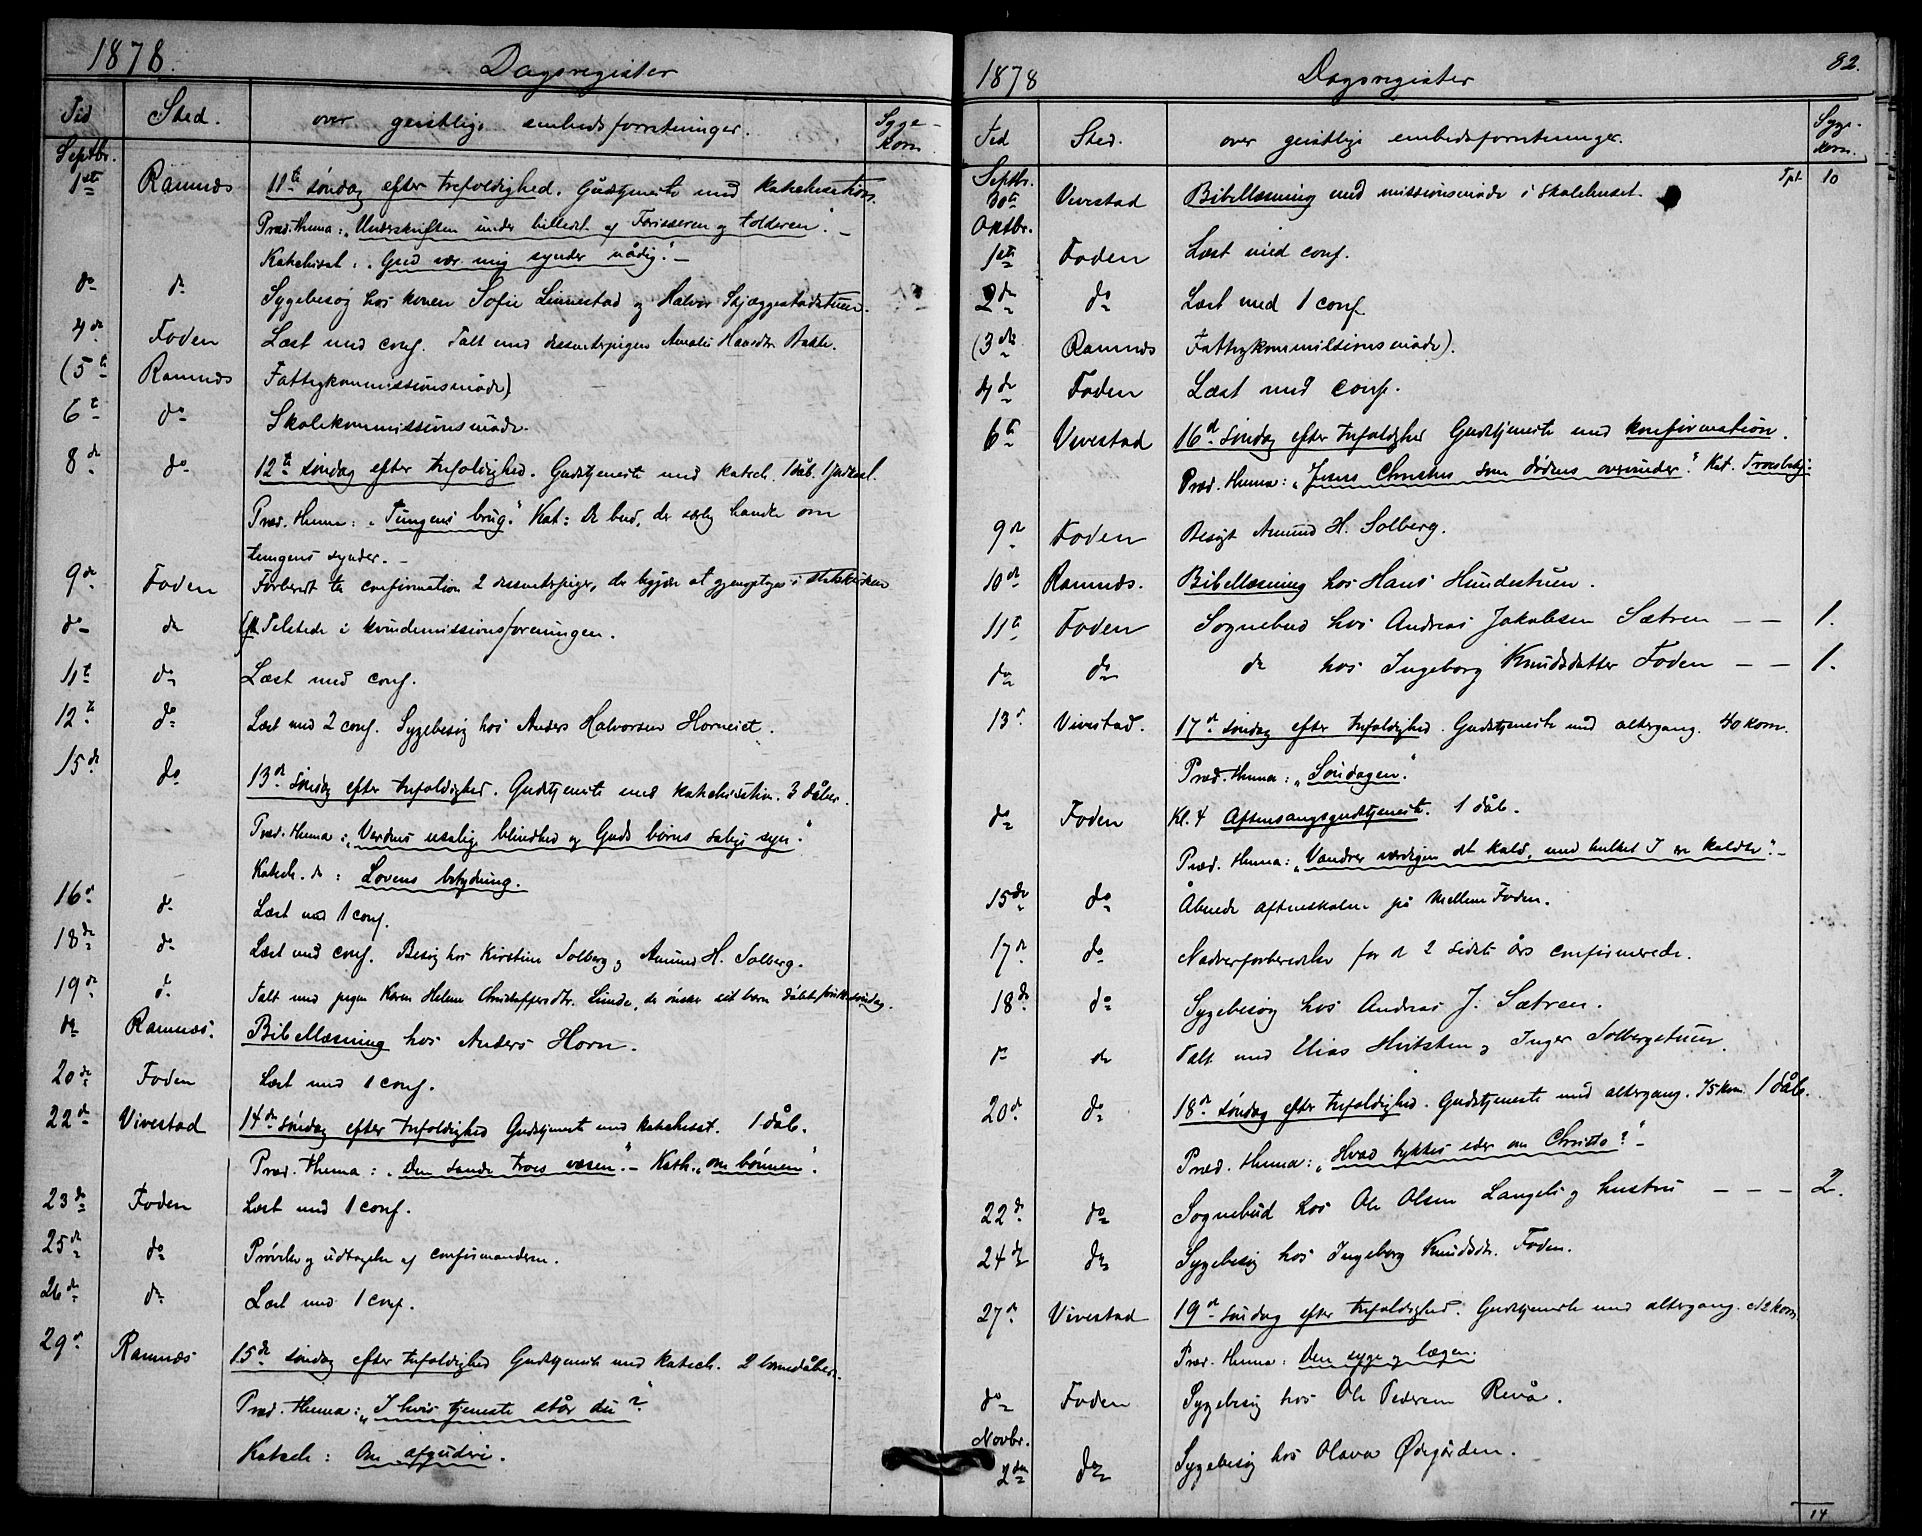 1878.
Dagsregister
Tid
Sted.
over geistlige embedsforretninger.
Syge-
kom.
Septbr.
1ste Ramnæs 11te søndag efter trefoldighed. Gudstjeneste med katekisation.
Præd. thema: "Underskriften under billedet af Farisæeren og tolderen". –
Katekisat.: "Gud vær mig synder nådig". –
do do Sygebesøg hos konen Sofie Linnestad og Halvor Skjæggestadstuen.
4de Foden Læst med conf. Talt med dissenterpigen Amalie Hansdtr. Bakke.
(5te Ramnæs Fattigkommissionsmøde)
6te do Skolekommissionsmøde.
8de do 12te søndag efter trefoldighed. Gudstjeneste med katech. 1 dåb. 1 jordkast.
Præd. thema: "Tungens brug". Kat: De bud, der særlig handle om
tungens synder. –
9de Foden Forberedt til confirmation 2 dissenterpiger, der begjære at gjenoptages i statskirken
do do (Tilstede i kvindemissionsforeningen.
11te do Læst med conf.
12te do Læst med 2 conf. Sygebesøg hos Anders Halvorsen Horneiet.
15de do 13de søndag efter trefoldighed. Gudstjeneste med katekisation. 3 dåber.
Præd. thema: "Verdens usalige blindhed og Guds børns salige syn".
Katech. do: Lovens betydning.
16de do Læst med 1 conf.
18de do Læst med conf. Besøg hos Kirstine Solberg og Amund H. Solberg.
19de do Talt med pigen Karen Helene Christoffersdtr. Linde, der ønsker sit barn døbt førstk. søndag.
do Ramnæs. Bibellæsning hos Anders Horn.
20de Foden Læst med 1 conf.
22de Vivestad 14de søndag efter trefoldighed Gudstjeneste med katekisat. 1 dåb.
Præd. thema: "Den sande troes væsen". – Kath. "om bønnen".
23de Foden Læst med 1 conf.
25de do Prøvelse og udtagelse af confirmanderne.
26de do Læst med 1 conf.
29de Ramnæs 15de søndag efter trefoldighed Gudstjeneste med katech. 2 barnedåber.
Præd. thema: "I hvis tjeneste står du"?
Katech: Om afguderi.
1878
Dagsregister
82.
Tid
Sted.
over geistlige embedsforretninger.
Syge-
kom.
Septbr. Tpt 10
30te Vivestad Bibellæsning med missionsmøde i skolehuset.
Oktbr.
1ste Foden Læst med conf.
2de do Læst med 1 conf
(3de Ramnæs Fattigkommissionsmøde).
4de Foden Læst med conf.
6te Vivestad 16de søndag efter trefoldighed Gudstjeneste med konfirmation.
Præd. thema: "Jesus Christus som dødens overvinder". Kat. Troesbekj:
9de Foden Besøgt Amund H. Solberg.
10de Ramnæs. Bibellæsning hos Hans Hundestuen.
11te Foden Sognebud hos Andreas Jakobsen Sætren – – 1.
do do do hos Ingeborg Knudsdatter Foden – – 1.
13de Vivestad. 17de søndag efter trefoldighed. Gudstjeneste med altergang. 40 kom.
Præd. thema: "Søndagen".
do Foden Kl. 4 Aftensangsgudstjeneste. 1 dåb.
Præd. thema: "Vandrer værdigen det kald, med hvilket I ere kaldte". –
15de do Åbnede aftenskolen på Mellem Foden.
17de do Nadverforberedelse for de 2 sidste års confirmerede.
18de do Sygebesøg hos Andreas J. Sætren.
do do Talt med Elias Hvitsten og Inger Solbergstuen.
20de do 18de søndag efter trefoldighed. Gudstjeneste med altergang. 75 kom. 1 dåb.
Præd. thema: "Hvad tykkes eder om Christo?" –
22de do Sognebud hos Ole Olsen Langeli og hustru – – – 2.
24de do Sygebesøg hos Ingeborg Knudsdtr. Foden.
27de Vivestad 19de søndag efter trefoldighed. Gudstjeneste med altergang. 42 kom
Præd. thema: Den syge og lægen.
do Foden Sygebesøg hos Ole Pedersen Revå.
Novbr.
2den do Sygebesøg hos Olava Ødegården.
14